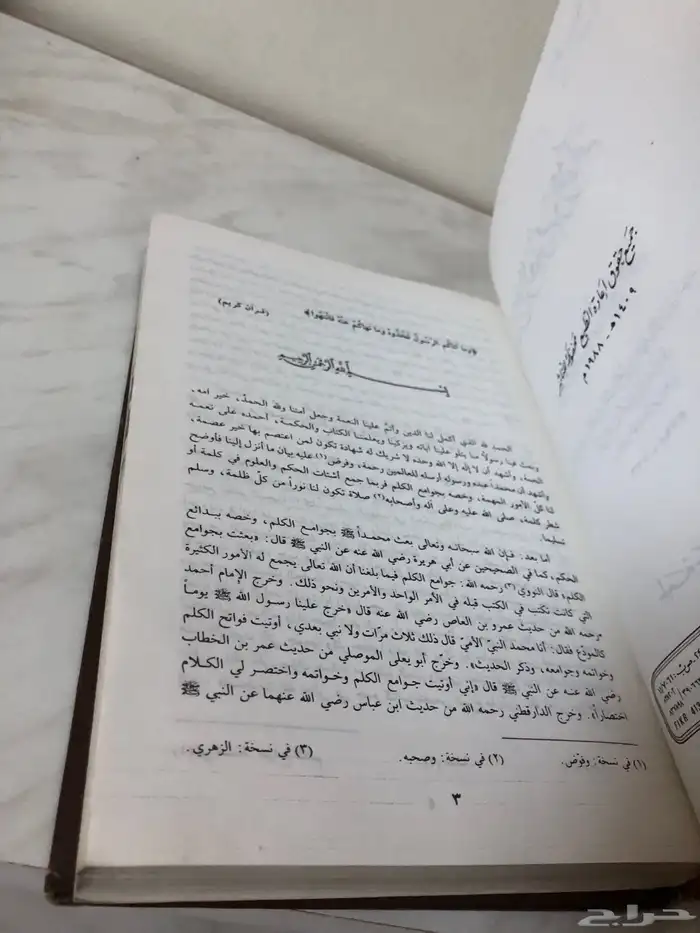 جميع حقوق إعادة الطبع محفوظة للناشر
١٤٠٩هـ - ١٩٨٨م
﴿وما آتاكم الرسول فخذوه وما نهاكم عنه فانتهوا﴾
(قرآن كريم)
بسم الله الرحمن الرحيم
الحمد لله الذي أكمل لنا الدين وأتم علينا النعمة وجعل أمتنا ولله الحمد، خير أمة،
وبعث فينا رسولاً منا يتلو علينا آياته ويزكينا ويعلمنا الكتاب والحكمة، أحمده على نعمه
الجمة، وأشهد أن لا إله إلا الله وحده لا شريك له شهادة تكون لمن اعتصم بها خير عصمة،
وأشهد أن محمداً عبده ورسوله أرسله للعالمين رحمة، وفرض(١) عليه بيان ما أنزل إلينا فأوضح
لنا كل الأمور المهمة، وخصه بجوامع الكلم فربما جمع أشتات الحكم والعلوم في كلمة أو
شطر كلمة، صلى الله عليه وعلى آله وأصحابه(٢) صلاة تكون لنا نوراً من كل ظلمة، وسلم
تسليما.
أما بعد: فإن الله سبحانه وتعالى بعث محمداً ﷺ بجوامع الكلم، وخصه ببدائع
الحكم، كما في الصحيحين عن أبي هريرة رضي الله عنه عن النبي ﷺ قال: «بعثت بجوامع
الكلم» قال النووي(٣) رحمه الله: جوامع الكلم فيما بلغنا أن الله تعالى يجمع له الأمور الكثيرة
التي كانت تكتب في الكتب قبله في الأمر الواحد والأمرين ونحو ذلك. وخرج الإمام أحمد
رحمه الله من حديث عمرو بن العاص رضي الله عنه قال «خرج علينا رسول الله ﷺ يوماً
كالمودّع فقال: أنا محمد النبيّ الأميّ قال ذلك ثلاث مرّات ولا نبي بعدي، أوتيت فواتح الكلم
وخواتمه وجوامعه، وذكر الحديث». وخرّج أبو يعلى الموصلي من حديث عمر بن الخطاب
رضي الله عنه عن النبي ﷺ قال «إني أوتيت جوامع الكلم وخواتمه واختصر لي الكلام
اختصاراً». وخرج الدارقطني رحمه الله من حديث ابن عباس رضي الله عنهما عن النبي ﷺ
(١) في نسخة: وفوّض. (٢) في نسخة: وصحبه. (٣) في نسخة: الزهري.
٣
حراج